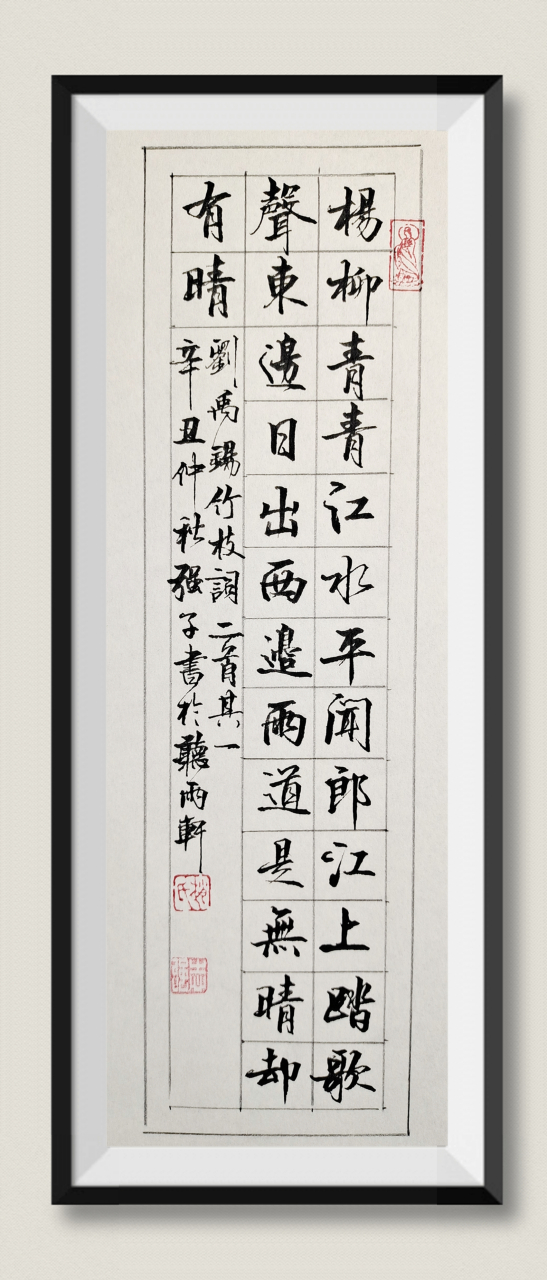 楊柳青青江水平聞郎江上踏歌
聲東邊日出西邊雨道是無晴却
有晴
劉禹錫竹枝詞二首其一
辛丑仲秋强子書於聽雨軒